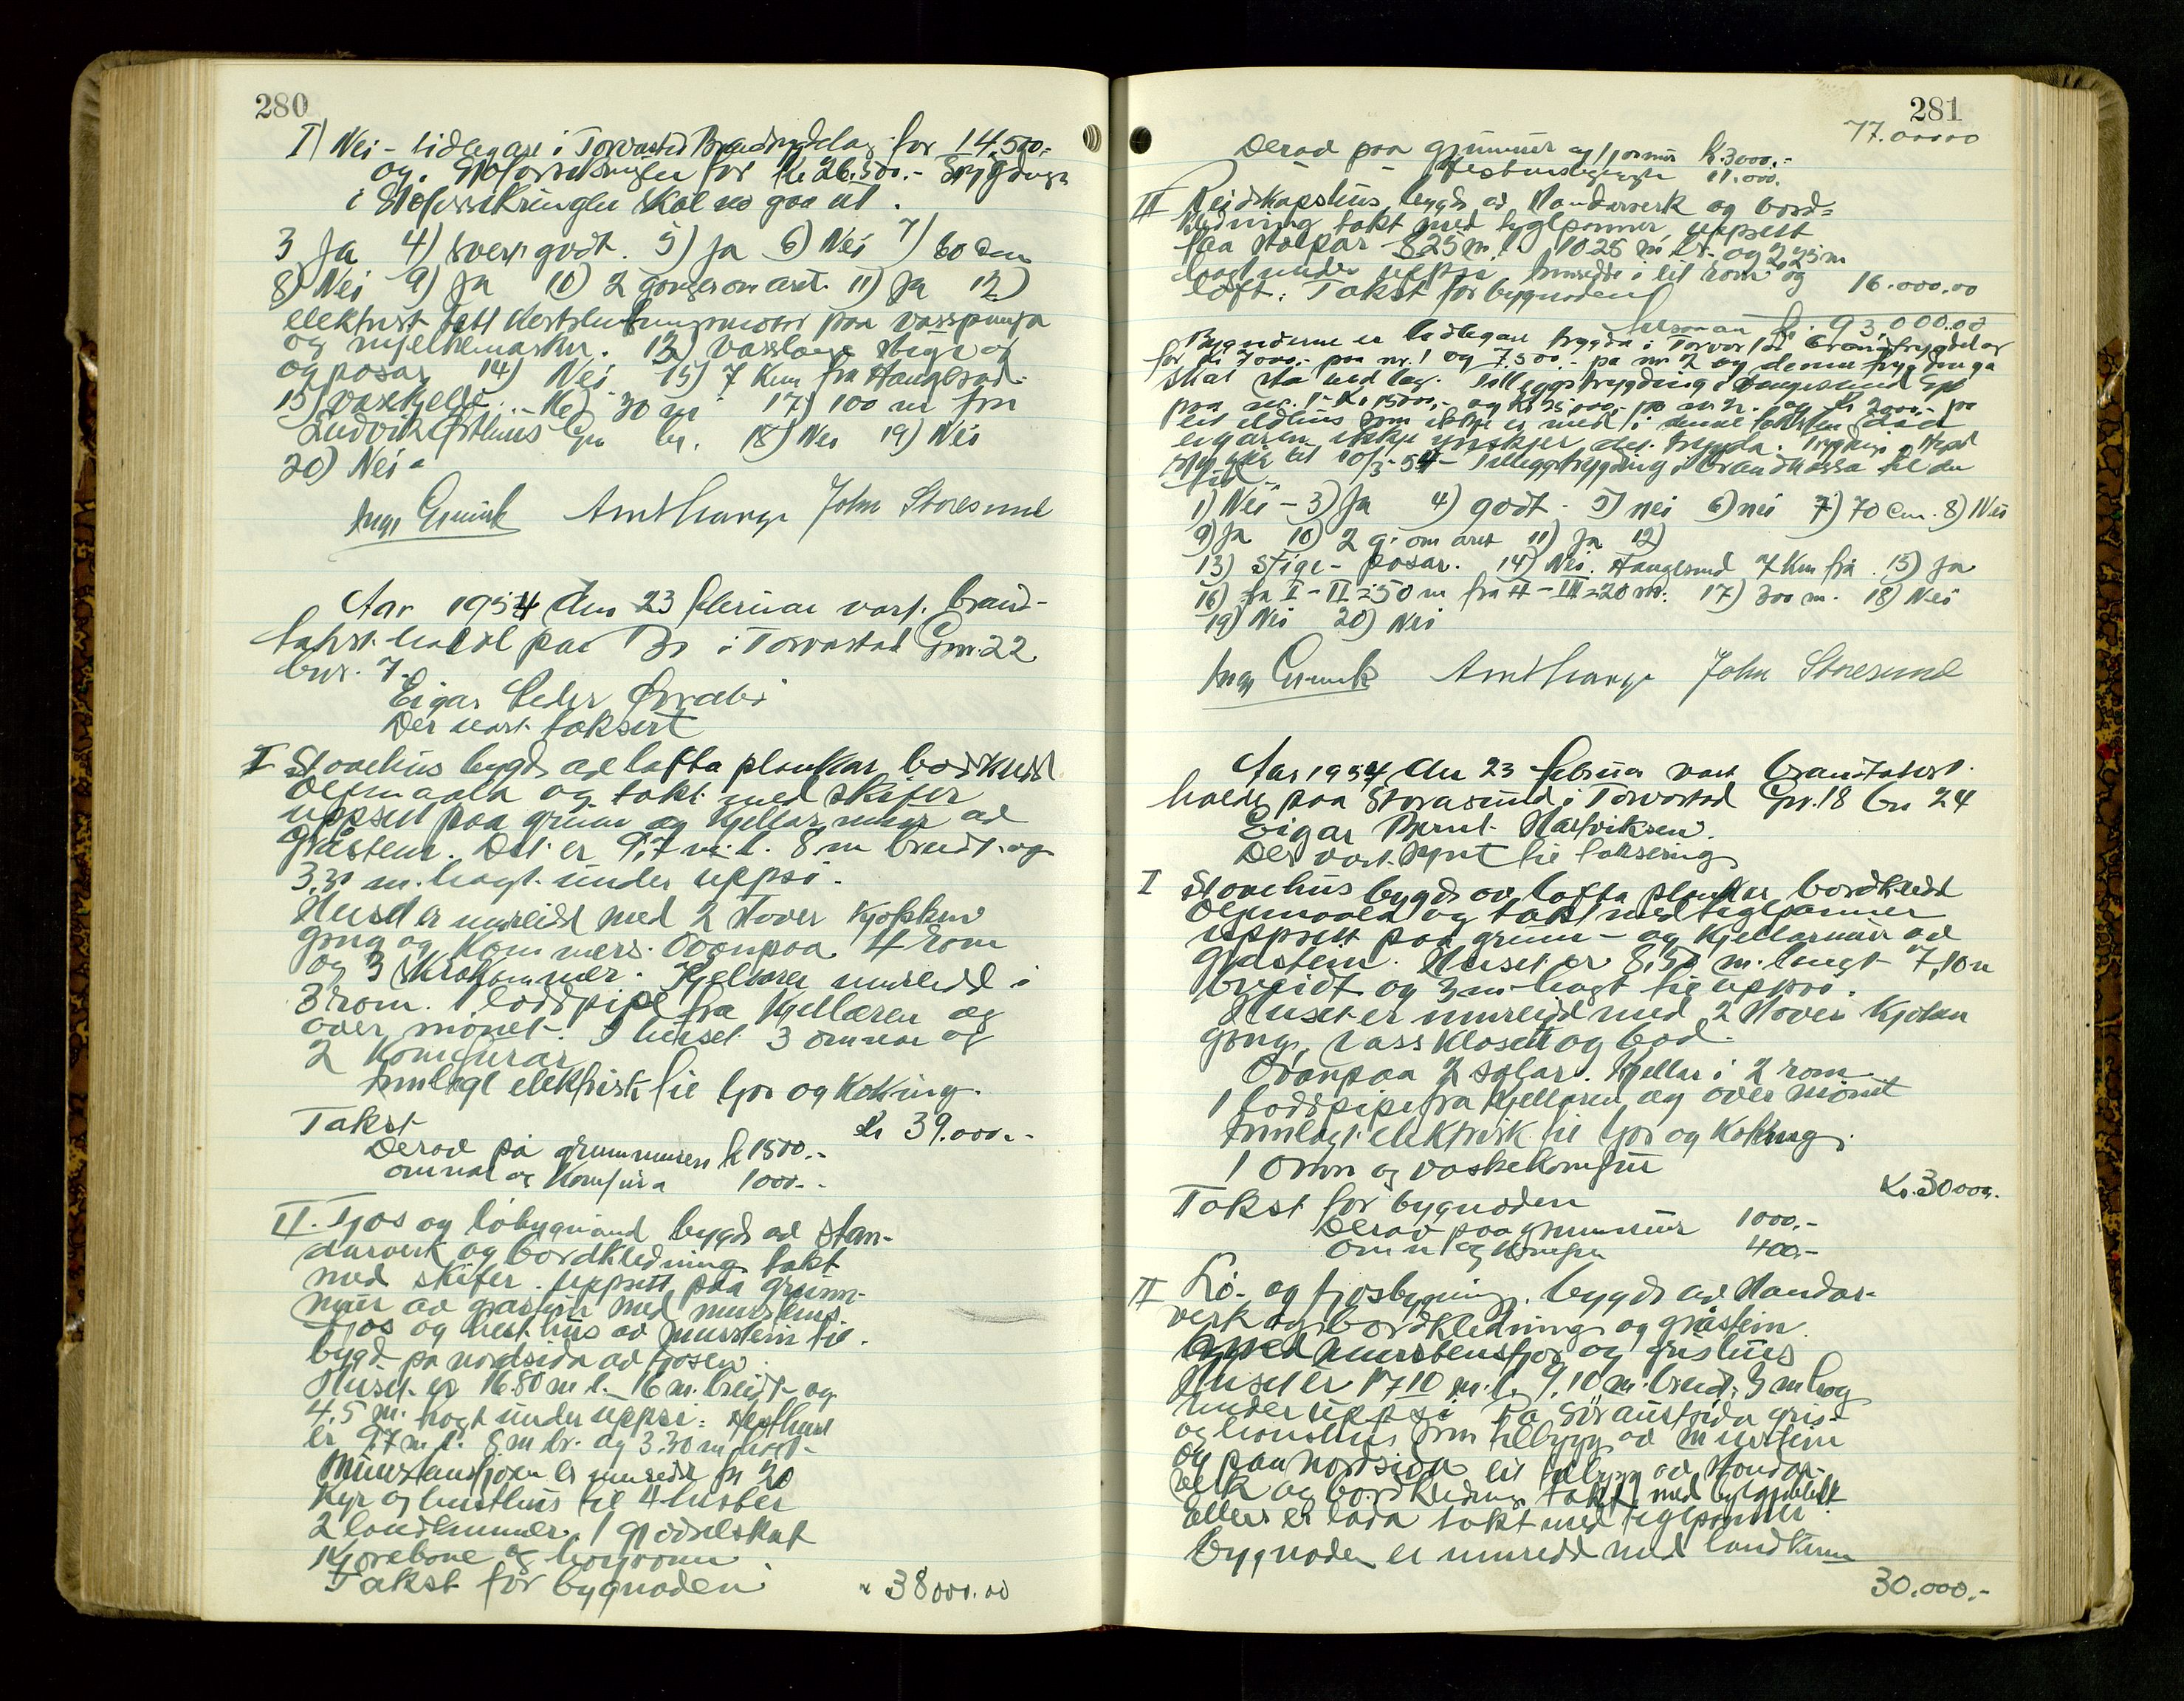 280
I) Nei - tidlegare i Torvastad Brandtrygdelag for 14.500.-
og. Storforsikringa for Kr 26.500.- Trygdinga
i Storforsikringa skal no gaa ut.
3 Ja 4) svert godt. 5) Ja 6) Nei 7) 60 cm
8) Nei 9) Ja 10) 2 gonger om aret. 11) Ja 12)
elektrisk paa vasspumpa
og mjelkemaskin. 13) vasslange stige og
og posar 14) Nei 15) 7 Km fra Haugesund
15) vaskjelle. - 16) 30 m 17) 100 m fra
Ludvik Østhus Gn br. 18) Nei 19) Nei
20) Nei.
John Storesund
Aar 1954 den 23 februar vart brand-
takst halde paa Bø i Torvastad Gnr. 22
bnr. 7.
Eigar Peder
Der vart taksert
I Stovehus bygd av lafta plankar bordkledd
oljemaala og takt med skifer
uppsett paa grunn og kjellarmur av
gråstein. Det er 9,7 m. l. 8 m breidt og
3,30 m. høgt under uppsi.
Huset er innreidd med 2 stover Kjøkken
gong og Kommers. Ovanpaa 4 rom
og 3 Kråkommer. Kjellaren innreidd i
3 rom. 1 loddpipe fra Kjellaren og
over mønet. I huset 3 omnar og
2 Komfurar
Innlagt elektrisk til ljos og Koking.
Takst Kr 39.000.-
Derav på grunnmuren k 1500.-
omnar og Komfura 1000.-
II. Fjos og løbygnad bygd av stan-
darverk og bordkledning takt
med skifer. uppsett paa grunn-
mur av gråstein med murstens
fjos og hesthus av murstein til-
bygd på nordsida av fjosen.
Huset er 16.80 m l. 16 m. breidt og
4.5 m. høgt under uppsi. Hesthuset
er 9.7 m l. 8 m br. og 3.30 m høgt.
Murstensfjosen er innreidd for 20
Kyr og hesthus til 4 hester
2 landkummer, 1 gjødselskut
1 Kjørebane og høyrom.
Takst for bygnaden " 38000.00
281
77.00000
Derav paa grunnmur og fjosmur k. 3000.-
" Hesthusbygnaden 11.000.
III Reidskapshus bygd av standarverk og bord-
kledning takt med teglpanner, uppsett
paa stolpar 8.25 m. l. 10.25 m br. og 2,25 m
høgt under uppsi, innredde i eit rom og
loft. Takst for bygnaden 16.000.00
Summa Kr. 93.000.00
Bygnadene er tidlegare trygda i Torvastad Brandtrygdelag
for Kr 7000.- paa nr. 1 og 7.500.- på nr 2 og denne trygdinga
skal sta ved lag. Tilleggstrygding i Haugesund
paa nr. 1 - Kr 15000.- og Kr 25.000 på nr 2. og Kr 2000.- på
eit eldhus som ikkje er med i denne taksten da
eigaren ikkje ynskjer det trygda.
til 10/3-54 - Tilleggstrygding i Brandkassa til den
tid.
1) Nei - 3) Ja 4) godt. 5) nei 6) nei 7) 70 cm. 8) Nei
9) Ja 10) 2 g. om aret 11) Ja 12)
13) Stige - posar. 14) Nei. Haugesund 7 Km frå. 15) Ja
16) fra I - II = 50 m fra II - III = 20 m. 17) 300 m. 18) Nei
19) Nei 20) Nei
John Storesund
Aar 1954 den 23 februar vart brandtakst
halde paa Storasund i Torvastad Gnr. 18 bn 24
Eigar Bernt Hartviksen.
Der vart synt til taksering
I Stovehus bygd av lafta plankar bordkledd
oljemaala og takt med teglpanner
uppsett paa grunn- og Kjellarmur av
gråstein. Huset er 8,50 m. langt 7,10 m
breidt og 3 m høgt til uppsi.
Huset er innreidd med 2 stover Kjøken
gong, vassklosett og bod.
Ovanpaa 2 salar. Kjellar i 2 rom
1 loddpipe fra Kjellaren og over mønet
Innlagt elektrisk til ljos og Koking.
1 omn og vaskekomfur
Takst for bygnaden Kr. 30000.
Derav paa grunnmur 1000.-
omn og Komfur 400.-
II Lø- og fjosbygning. bygd av standar-
verk og bordkledning og gråstein
med murstensfjos og grishus
Huset er 17.10 m. l. 9.10 m. breidt. 3 m høg
under uppsi. Pa søraustsida gris-
og hønsehus som tilbygg av murstein
og paa nordsida eit tilbygg av standar-
verk og bordkledning takt med bylgjeblikk
Ellers er løda takt med teglpanner
bygnaden er innredd med landkum
30.000.-